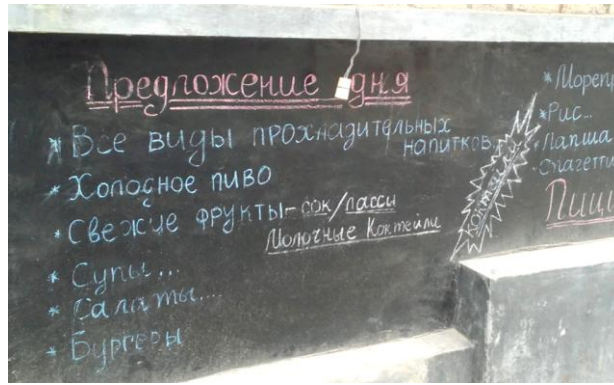 Предложение дня
* Все виды прохладительных
напитков
* Холодное пиво
* Свежие фрукты - сок/ласси
Молочные Коктейли
* Супы...
* Салаты....
* Бургеры
Коктейли
* Морепр
* Рис...
* Лапша
* Спагетти
Пицц